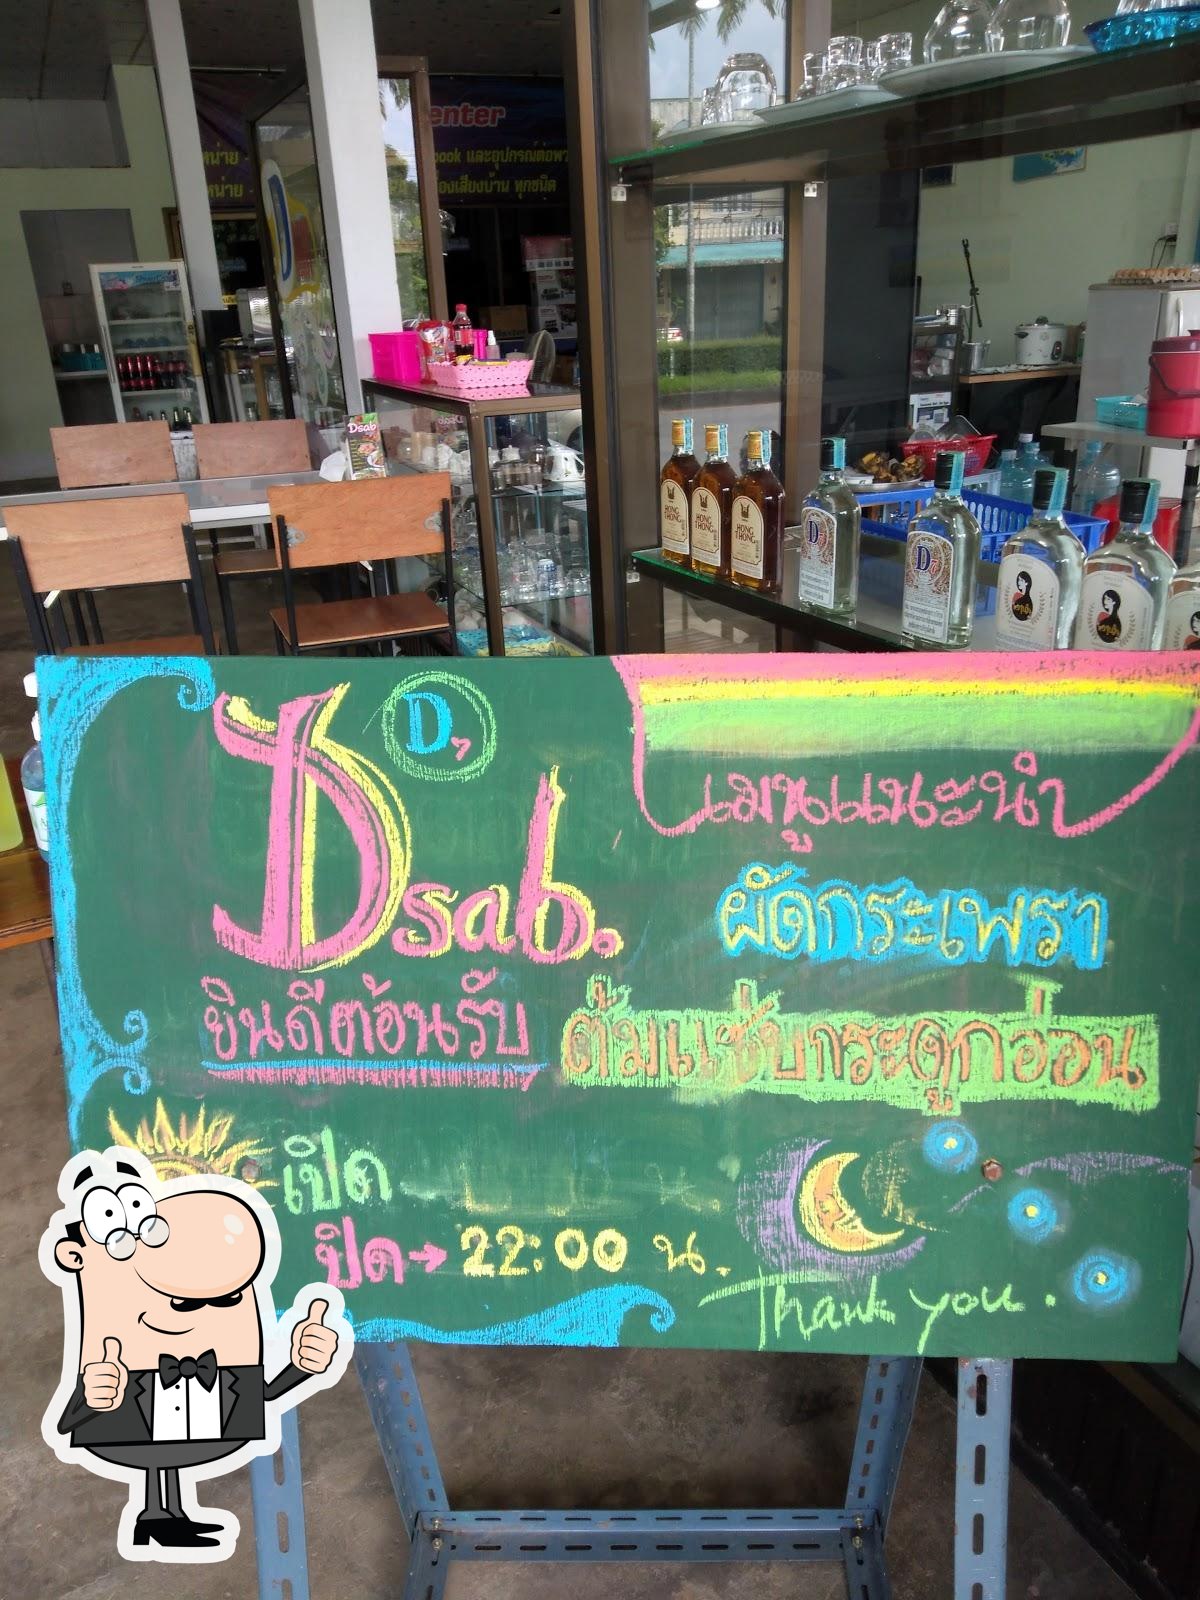 enter
book และอุปกรณ์ต่อพ
หน่าย -
องเสียงบ้าน ทุกชนิด
หน่าย -
Dsab
HONG THONG
HONG THONG
HONG THONG
D7
D7
D7
Dsab.
เมนูแนะนำ
ผัดกระเพรา
ยินดีต้อนรับ
ต้มแซ่บกระดูกอ่อน
เปิด
ปิด → 22:00 น.
Thank you.